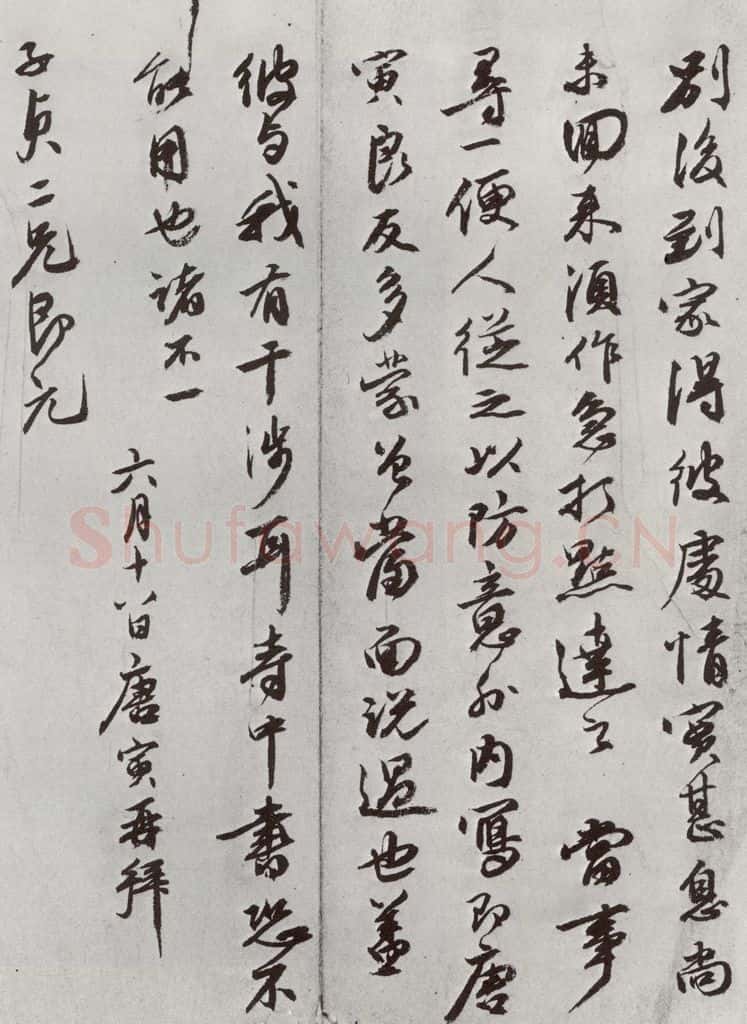 別後到家得彼處情實甚急尚
未回来須作急打點達之 當事
尋一便人從之以防意外内寫即唐
寅良友多蒙公當面説過也蓋
彼与我有干涉耳寿中書恐不
能用也諸不一
六月十八日唐寅再拜
子貞二兄即元
Shufawang.CN